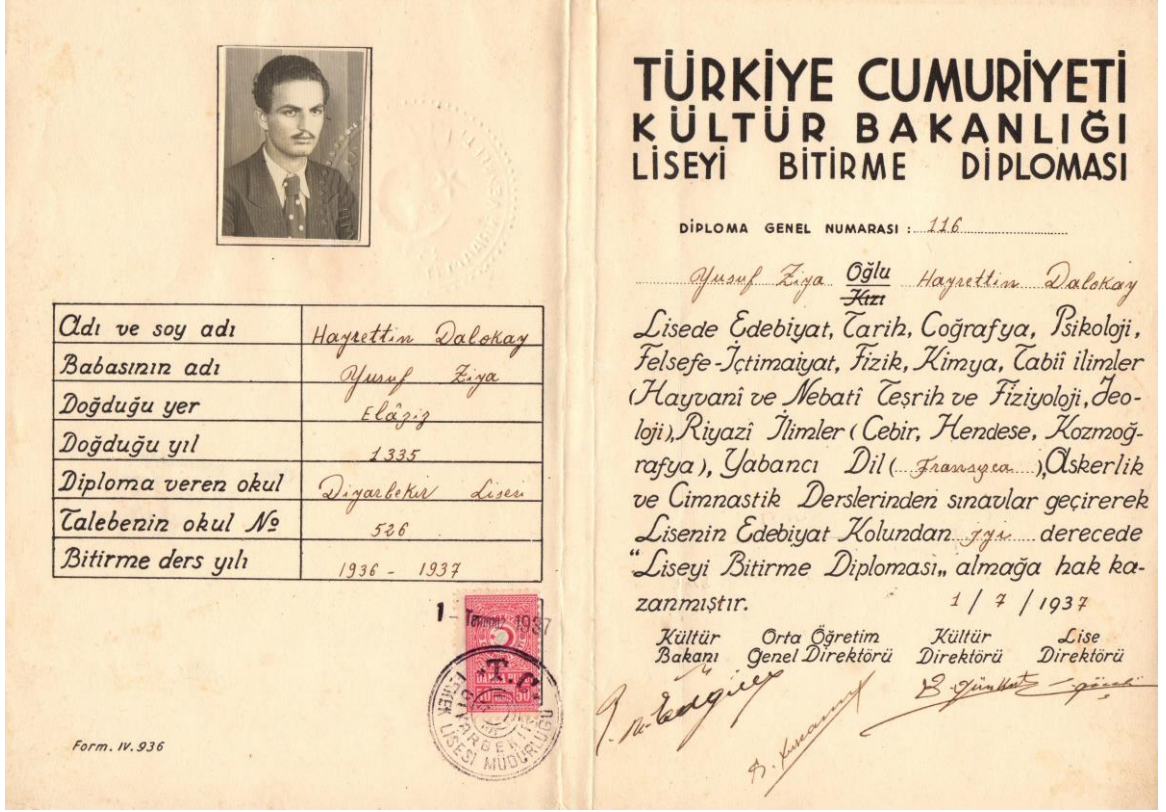 Adı ve soy adı Hayrettin Dalokay
Babasının adı Yusuf Ziya
Doğduğu yer Elâziz
Doğduğu yıl 1335
Diploma veren okul Diyarbekir Lisesi
Talebenin okul No 526
Bitirme ders yılı 1936 - 1937
1 - Temmuz 1937
T.C.
DAMGA PULU
50 50
DİYARBEKİR
ERKEK LİSESİ MÜDÜRLÜĞÜ
Form. IV. 936
TÜRKİYE CUMURİYETİ
KÜLTÜR BAKANLIĞI
LİSEYİ BİTİRME DİPLOMASI
DİPLOMA GENEL NUMARASI : 116
Yusuf Ziya Oğlu Hayrettin Dalokay
Kızı
Lisede Edebiyat, Tarih, Coğrafya, Psikoloji,
Felsefe-İçtimaiyat, Fizik, Kimya, Tabiî ilimler
(Hayvanî ve Nebatî Teşrih ve Fiziyoloji, Jeo-
loji), Riyazî İlimler (Cebir, Hendese, Kozmoğ-
rafya), Yabancı Dil ( Fransızca ), Askerlik
ve Cimnastik Derslerinden sınavlar geçirerek
Lisenin Edebiyat Kolundan iyi derecede
"Liseyi Bitirme Diploması„ almağa hak ka-
zanmıştır. 1 / 7 / 1937
Kültür Orta Öğretim Kültür Lise
Bakanı Genel Direktörü Direktörü Direktörü